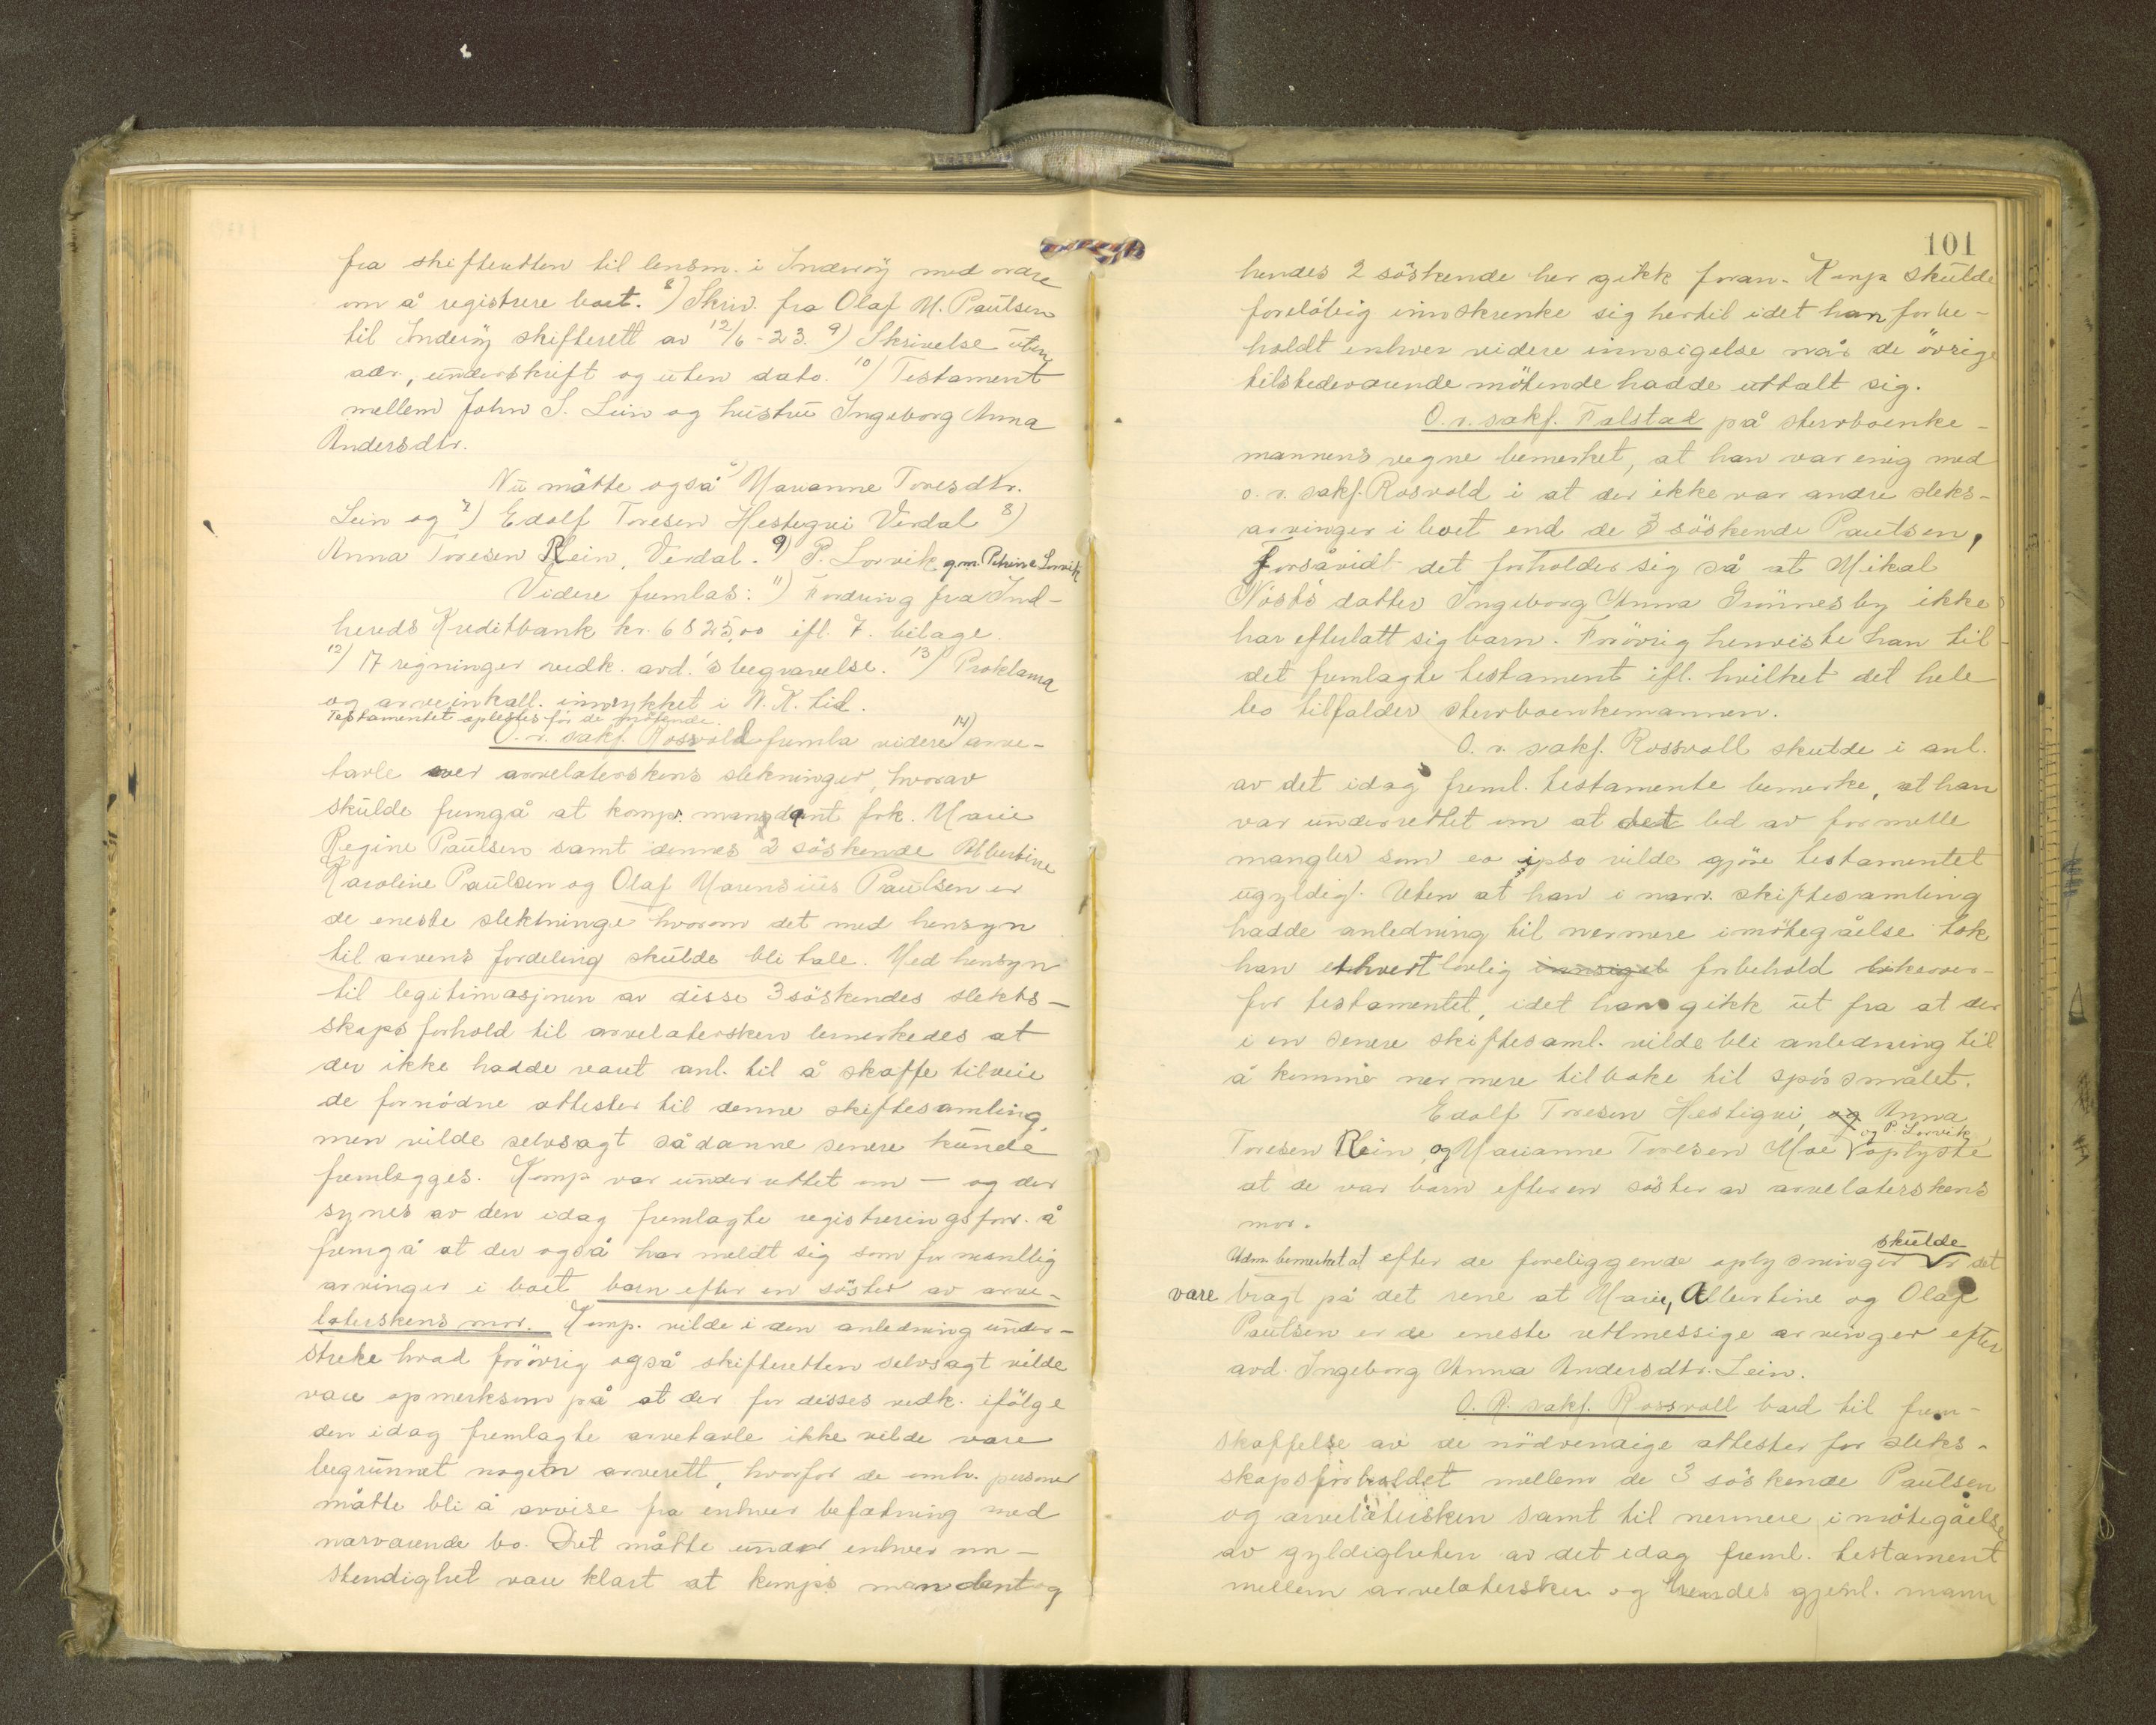 fra skifteretten til lensm. i Inderøy med ordre
om å registrere boet. 8) Skriv. fra Olaf M. Paulsen
til Inderøy skifterett av 12/6-23. 9) Skrivelse uten
adr., underskrift og uten dato. 10) Testament
mellem John S. Lein og hustru Ingeborg Anna
Andersdtr.
Nu møtte også Marianne Toresdtr.
Lein og 7) Edolf Toresen Hestegrei Verdal 8)
Anna Toresen Rein, Verdal. 9) P. Lorvik g.m. Petrine Lorvik
Videre fremlas: 11) Fordring fra Ind-
hereds Kreditbank kr. 6825,00 ifl. 7. bilage.
12) 17 regninger vedk. avd.'s begravelse. 13) Proklama
og arveinkall. innrykket i N. K. tid.
Testamentet oplestes for de møtende.
O.r. sakf. Rosvold fremla videre 14) arve-
tavle over arvelaterskens slektninger, hvorav
skulde fremgå at komp. mandant frk. Marie
Regine Paulsen samt dennes 2 söskende Albertine
Karoline Paulsen og Olaf Marensius Paulsen er
de eneste slektninge hvorom det med hensyn
til arvens fordeling skulde bli tale. Med hensyn
til legitimasjonen av disse 3 söskendes slekts-
skaps forhold til arvelatersken bemerkedes at
der ikke hadde vært anl. til å skaffe tilveie
de fornödne attester til denne skiftesamling,
men vilde selvsagt sådanne senere kunde
fremlegges. Komp var underrettet om – og der
synes av den idag fremlagte registreringsforr. å
fremgå at der også har meldt sig som formentlig
arvinger i boet barn efter en söster av arve-
laterskens mor. Komp. vilde i den anledning under-
streke hvad forövrig også skifteretten selvsagt vilde
være opmerksom på at der for disses vedk. ifölge
den idag fremlagte arvetavle ikke vilde være
begrunnet nogen arverett, hvorfor de omh. personer
måtte bli å avvise fra enhver befatning med
nærværende bo. Det måtte under enhver om-
stendighet være klart at komps mandant og
101
hendes 2 söskende her gikk foran. Komp skulde
forelöbig innskrenke sig hertil idet han forbe-
holdt enhver videre innsigelse når de övrige
tilstedeværende mötende hadde uttalt sig.
O.r. sakf. Falstad på sterrboenke-
mannens vegne bemerket, at han var enig med
o.r. sakf. Rosvold i at der ikke var andre sleks-
arvinger i boet end de 3 söskende Paulsen,
forsåvidt det forholder sig så at Mikal
datter Ingeborg Anna Grönnesby ikke
har efterlatt sig barn. Forövrig henviste han til
det fremlagte testament ifl. hvilket det hele
bo tilfalder sterrboenkemannen.
O.r. sakf. Rossvoll skulde i anl.
av det idag freml. testamente bemerke, at han
var underrettet om at det led av formelle
mangler som eo ipso vilde gjöre testamentet
ugyldig. Uten at han i nærv. skiftesamling
hadde anledning til nermere imötegåelse tok
han ethvert lovlig innsigel forbehold likeover-
for testamentet, idet han gikk ut fra at der
i en senere skiftesaml. vilde bli anledning til
å komme nermere tilbake til spörsmålet.
Edolf Toresen Hestigrei, og Anna
Toresen Rein, og Marianne Toresen Moe og P. Lorvik oplyste
at de var barn efter en söster av arvelaterskens
mor.
Adm. bemerket at efter de foreliggende oplysninger skulde er det
være bragt på det rene at Marie, Albertine og Olaf
Paulsen er de eneste rettmessige arvinger efter
avd. Ingeborg Anna Andersdtr. Lein.
O. R. sakf. Rossvoll bad til frem-
skaffelse av de nödvendige attester for sleks-
skapsforholdet mellem de 3 söskende Paulsen
og arvelatersken samt til nermere imötegåelse
av gyldigheten av det idag freml. testament
mellem arvelatersken og hendes gjenl. mann